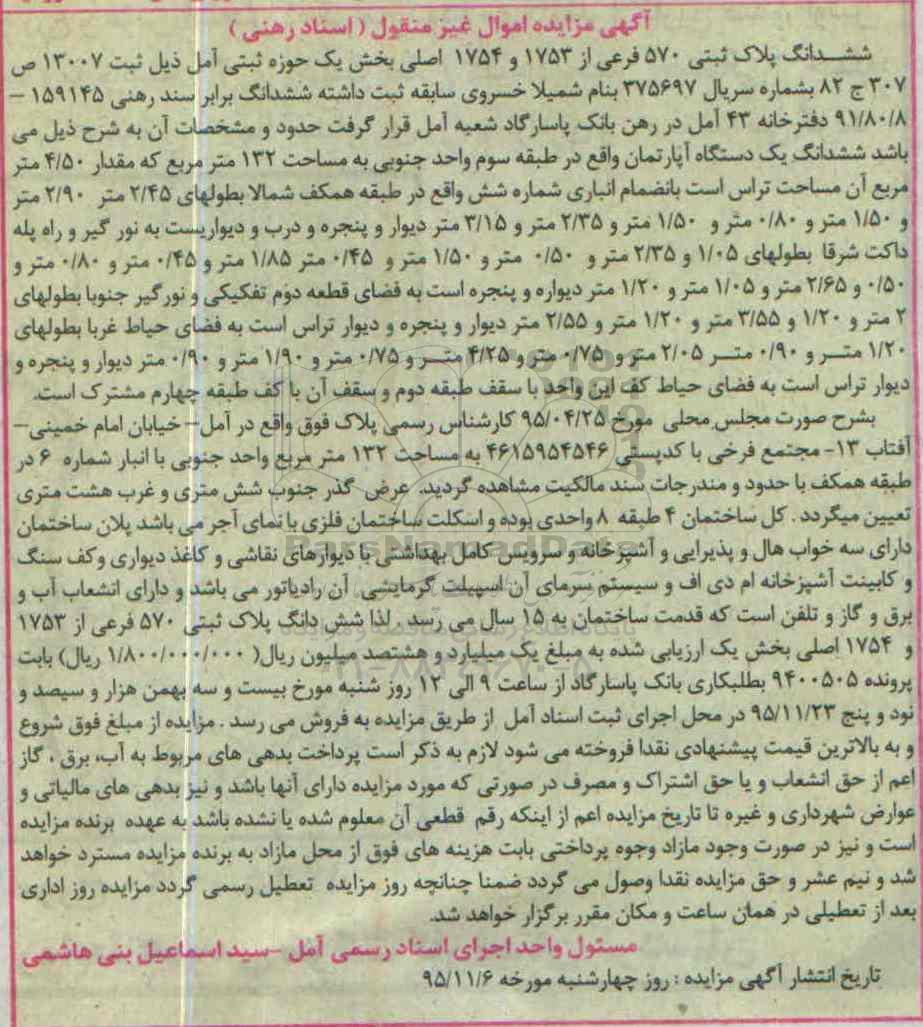 آگهی مزایده اموال غیر منقول ( اسناد رهنی )
ششـــدانگ پلاک ثبتی ۵۷۰ فرعی از ۱۷۵۳ و ۱۷۵۴ اصلی بخش یک حوزه ثبتی آمل ذیل ثبت ۱۳۰۰۷ ص
۳۰۷ ج ۸۲ بشماره سریال ۳۷۵۶۹۷ بنام شمیلا خسروی سابقه ثبت داشته ششدانگ برابر سند رهنی ۱۵۹۱۴۵ –
۹۱/۸۰/۸ دفترخانه ۴۳ آمل در رهن بانک پاسارگاد شعبه آمل قرار گرفت حدود و مشخصات آن به شرح ذیل می
باشد ششدانگ یک دستگاه آپارتمان واقع در طبقه سوم واحد جنوبی به مساحت ۱۳۲ متر مربع که مقدار ۴/۵۰ متر
مربع آن مساحت تراس است بانضمام انباری شماره شش واقع در طبقه همکف شمالا بطولهای ۲/۴۵ متر ۲/۹۰ متر
و ۱/۵۰ متر و ۰/۸۰ متر و ۱/۵۰ متر و ۲/۳۵ متر و ۳/۱۵ متر دیوار و پنجره و درب و دیواریست به نور گیر و راه پله
داکت شرقا بطولهای ۱/۰۵ و ۲/۳۵ متر و ۰/۵۰ متر و ۱/۵۰ متر و ۰/۴۵ متر ۱/۸۵ متر و ۰/۴۵ متر و ۰/۸۰ متر و
۰/۵۰ و ۲/۶۵ متر و ۱/۰۵ متر و ۱/۲۰ متر دیواره و پنجره است به فضای قطعه دوم تفکیکی و نورگیر جنوبا بطولهای
۲ متر و ۱/۲۰ و ۳/۵۵ متر و ۱/۲۰ متر و ۲/۵۵ متر دیوار و پنجره و دیوار تراس است به فضای حیاط غربا بطولهای
۱/۲۰ متـــر و ۰/۹۰ متـــر ۲/۰۵ متر و ۰/۷۵ متر و ۴/۲۵ متـــر و ۰/۷۵ متر و ۱/۹۰ متر و ۰/۹۰ متر دیوار و پنجره و
دیوار تراس است به فضای حیاط کف این واحد با سقف طبقه دوم و سقف آن با کف طبقه چهارم مشترک است.
بشرح صورت مجلس محلی مورخ ۹۵/۰۴/۲۵ کارشناس رسمی پلاک فوق واقع در آمل– خیابان امام خمینی–
آفتاب ۱۳- مجتمع فرخی با کدپستی ۴۶۱۵۹۵۴۵۴۶ به مساحت ۱۳۲ متر مربع واحد جنوبی با انبار شماره ۶ در
طبقه همکف با حدود و مندرجات سند مالکیت مشاهده گردید. عرض گذر جنوب شش متری و غرب هشت متری
تعیین میگردد . کل ساختمان ۴ طبقه ۸ واحدی بوده و اسکلت ساختمان فلزی با نمای آجر می باشد پلان ساختمان
دارای سه خواب هال و پذیرایی و آشپزخانه و سرویس کامل بهداشتی با دیوارهای نقاشی و کاغذ دیواری وکف سنگ
و کابینت آشپزخانه ام دی اف و سیستم سرمای آن اسپیلت گرمایشی آن رادیاتور می باشد و دارای انشعاب آب و
برق و گاز و تلفن است که قدمت ساختمان به ۱۵ سال می رسد . لذا شش دانگ پلاک ثبتی ۵۷۰ فرعی از ۱۷۵۳
و ۱۷۵۴ اصلی بخش یک ارزیابی شده به مبلغ یک میلیارد و هشتصد میلیون ریال( ۱/۸۰۰/۰۰۰/۰۰۰ ریال) بابت
پرونده ۹۴۰۰۵۰۵ بطلبکاری بانک پاسارگاد از ساعت ۹ الی ۱۲ روز شنبه مورخ بیست و سه بهمن هزار و سیصد و
نود و پنج ۹۵/۱۱/۲۳ در محل اجرای ثبت اسناد آمل از طریق مزایده به فروش می رسد . مزایده از مبلغ فوق شروع
و به بالاترین قیمت پیشنهادی نقدا فروخته می شود لازم به ذکر است پرداخت بدهی های مربوط به آب، برق ، گاز
اعم از حق انشعاب و یا حق اشتراک و مصرف در صورتی که مورد مزایده دارای آنها باشد و نیز بدهی های مالیاتی و
عوارض شهرداری و غیره تا تاریخ مزایده اعم از اینکه رقم قطعی آن معلوم شده یا نشده باشد به عهده برنده مزایده
است و نیز در صورت وجود مازاد وجوه پرداختی بابت هزینه های فوق از محل مازاد به برنده مزایده مسترد خواهد
شد و نیم عشر و حق مزایده نقدا وصول می گردد ضمنا چنانچه روز مزایده تعطیل رسمی گردد مزایده روز اداری
بعد از تعطیلی در همان ساعت و مکان مقرر برگزار خواهد شد.
مسئول واحد اجرای اسناد رسمی آمل -سید اسماعیل بنی هاشمی
تاریخ انتشار آگهی مزایده : روز چهارشنبه مورخه ۹۵/۱۱/۶
ParsNamadData